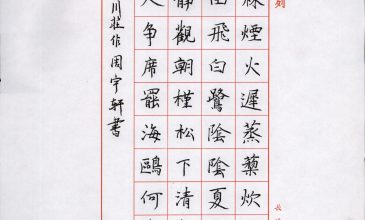 列
林煙火遲蒸藜炊
田飛白鷺陰陰夏
靜觀朝槿松下清
人争席罷海鷗何
川莊作周宇軒書